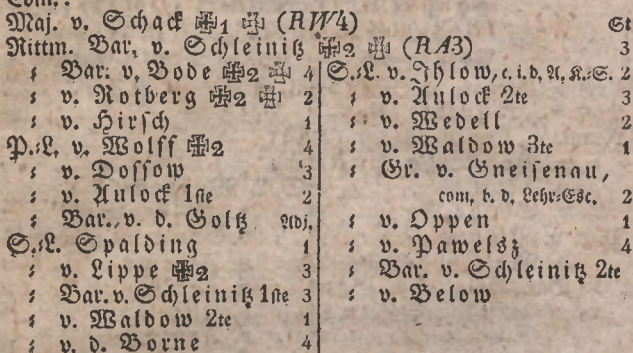 Maj. v. Schack ✠1 ✠ (RW4)
Rittm. Bar. v. Schleinitz ✠2 ✠ (RA3) 3
: Bar. v. Bode ✠2 ✠ 4
: v. Rotberg ✠2 ✠ 2
: v. Hirsch 1
P.:L. v. Wolff ✠2 4
: v. Dossow 3
: v. Aulock 1ste 2
: Bar. v. d. Goltz Adj.
S.:L. Spalding 1
: v. Lippe ✠2 3
: Bar. v. Schleinitz 1ste 3
: v. Waldow 2te 1
: v. d. Borne 4
S.:L. v. Ihlow, c. i. d. A. K.:S. 2
: v. Aulock 2te 3
: v. Wedell 2
: v. Waldow 3te 1
: Gr. v. Gneisenau,
com. b. d. Lehr:Esc. 2
: v. Oppen 1
: v. Pawelsz 4
: Bar. v. Schleinitz 2te
: v. Below